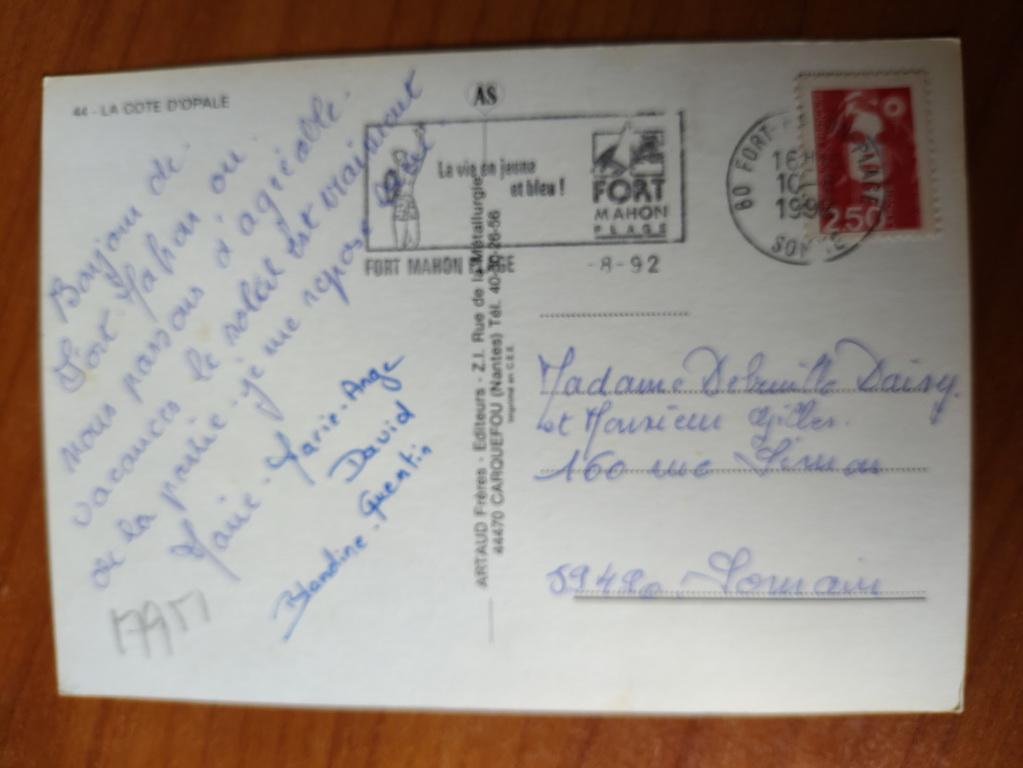 44 - LA COTE D'OPALE
AS
Bonjour de
Fort-Mahon ou
nous passons d'agréable
vacances le soleil est vraiment
de la partie - je me repose
Marie-Ange
David
Blandine - Quentin
17951
La vie en jaune
et bleu !
FORT
MAHON
PLAGE
FORT MAHON PLAGE
-8-92
80 FORT-
10
2,50
ARTAUD Frères - Editeurs - Z.I. Rue de la Métallurgie
44470 CARQUEFOU (Nantes) Tél. 40-30-26-56
Imprimé en C.E.E.
Madame Daisy
et Monsieur Gilles
160 rue
Somain